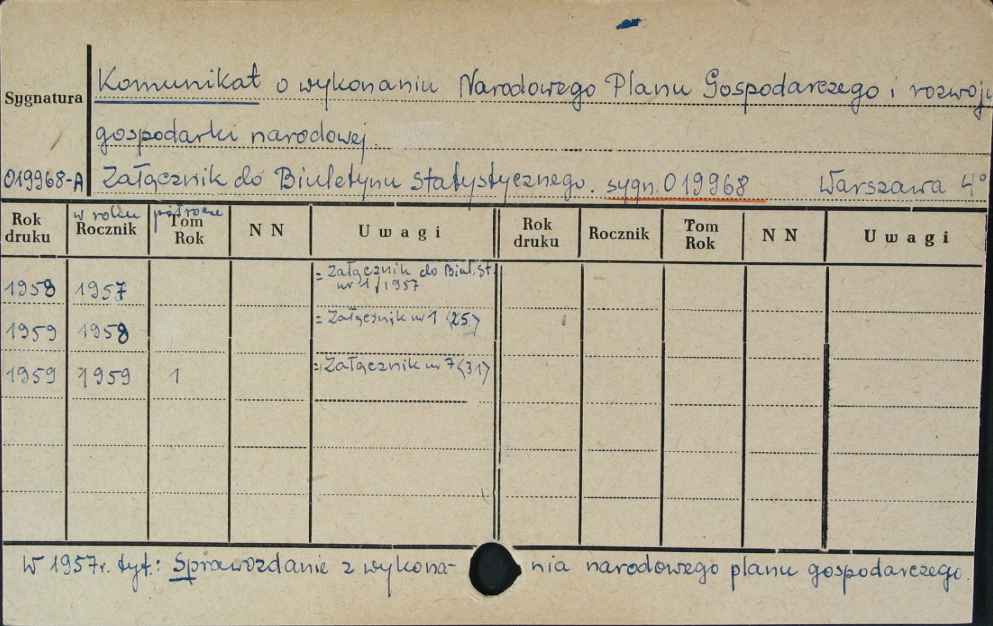 Komunikat o wykonaniu Narodowego Planu Gospodarczego i rozwoju
Sygnatura
gospodarki narodowej.
019968-A Załącznik do Biuletynu statystycznego. sygn. 019968 Warszawa 4°
Rok druku w roku Rocznik półrocze Tom Rok N N Uwagi Rok druku Rocznik Tom Rok N N Uwagi
1958 1957 = Załącznik do Biul. St. nr 1/1957
1959 1958 = Załącznik nr 1 (25)
1959 1959 1 = Załącznik nr 7 (31)
W 1957r. tyt.: Sprawozdanie z wykona- nia narodowego planu gospodarczego.